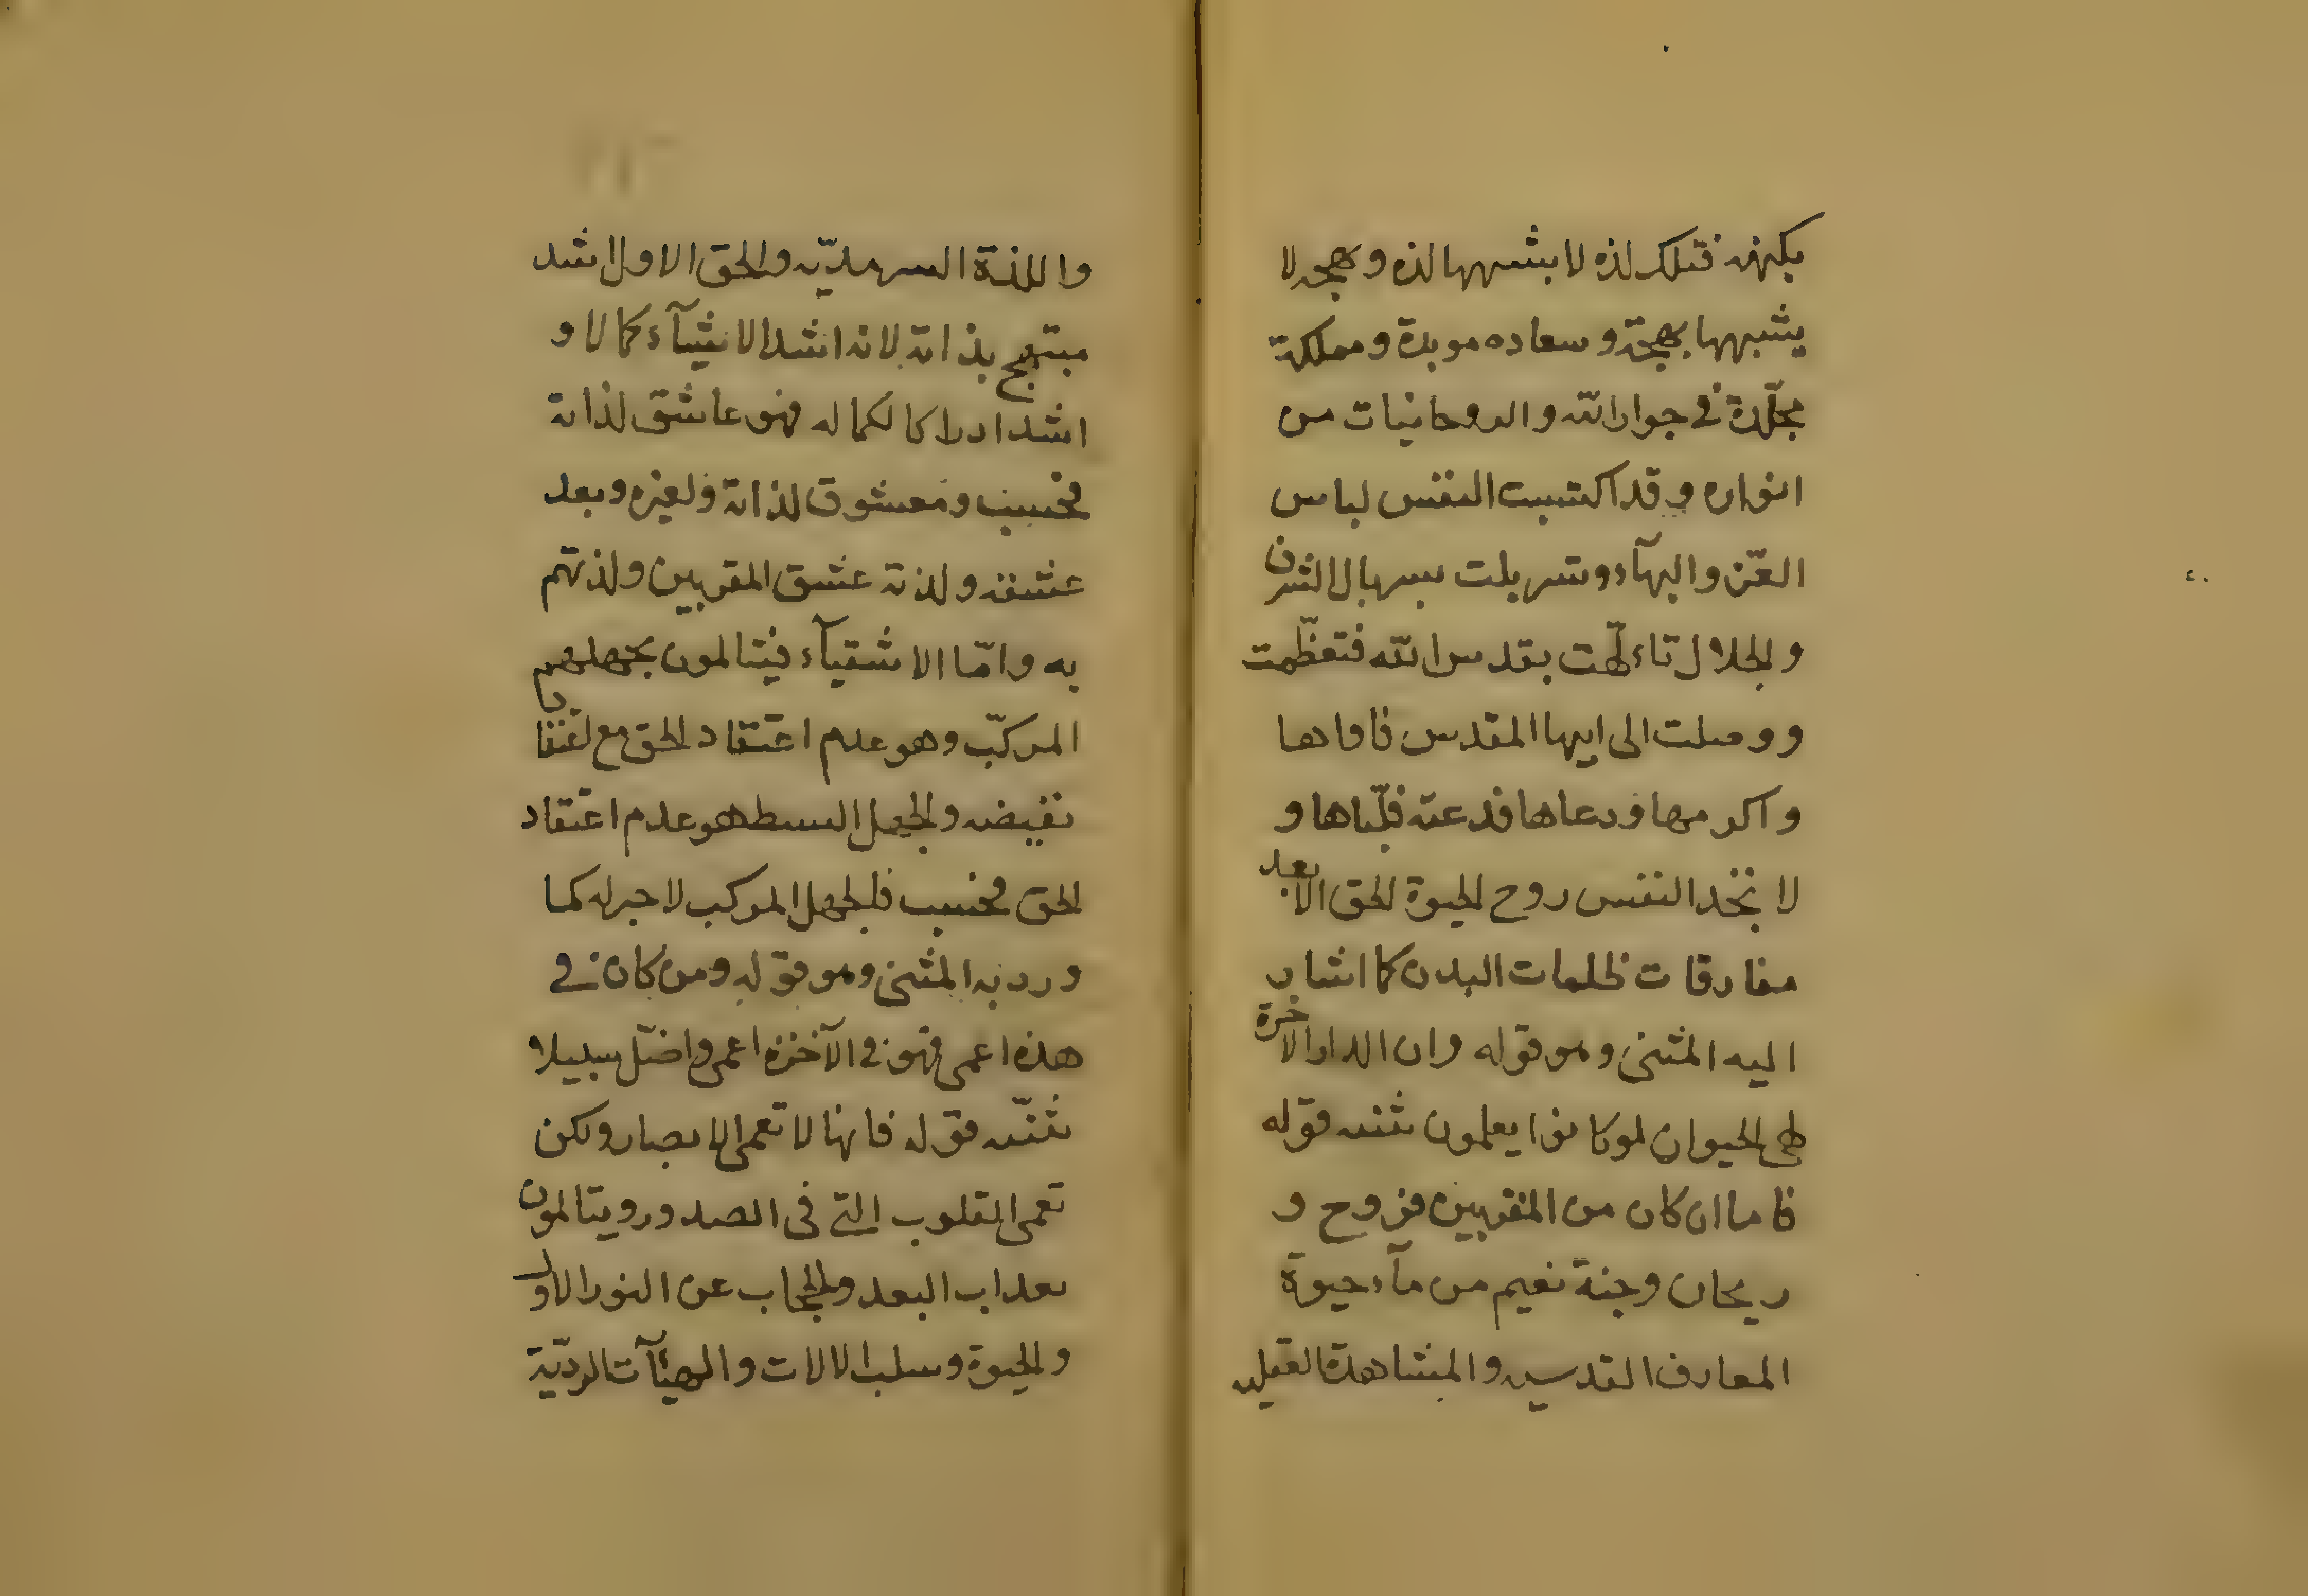 يكنهه فتلك لذه لا يشبهها لذه وبهجه لا
يشبهها بهجة وسعاده موبدة ومملكة
مخلّدة فى جوار الله والروحانيات من
انواره وقد اكتسبت النفس لباس
العزّ والبهآء وتسربلت بسربال الشرف
والجلال تاءلّهت بقدس الله فتعظّمت
ووصلت الى ابيها المقدس فاواها
واكرمها ودعاها فدعته فلبّاها و
لا تجد النفس روح الحيوة الحق الا بعد
مفارقات ظلمات البدن كما اشار
اليه المثنى وهو قوله وان الدار الاخرة
لهى الحيوان لو كانوا يعلمون تثنيه قوله
فاما ان كان من المقربين فروح و
ريحان وجنة نعيم من مآء حيوة
المعارف القدسيه والمشاهدة العقليه
واللذة السرمديّه والحق الاول اشد
مبتهج بذاته لانه اشد الاشيآء كمالا و
اشد ادراكا لكماله فهو عاشق لذاته
فحسب ومعشوق لذاته ولغيره وبعد
عشقه ولذته عشق المقربين ولذتهم
به وامّا الاشقيآء فيتالمون بجهلهم
المركّب وهو عدم اعتقاد الحق مع
نقيضه والجهل البسيط هو عدم اعتقاد
الحق فحسب فالجهل المركب لا جبر له كما
ورد به المثنى وهو قوله ومن كان فى
هذه اعمى فهو فى الآخرة اعمى واضلّ سبيلا
تثنيه قوله فانها لا تعمى الابصار ولكن
تعمى القلوب التى فى الصدور ويتالمون
بعذاب البعد والحجاب عن النور الاول
والحيوة وسلب الالات والهيآت الرديّة